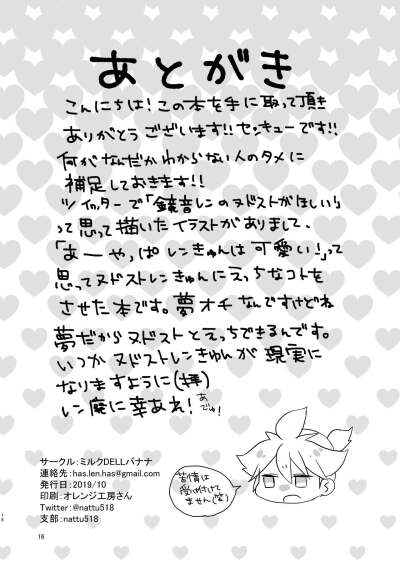 あとがき
こんにちは!この本を手に取って頂き
ありがとうございます!!センキューです!!
何がなんだかわからない人のタメに
補足しておきます!!
ツイッターで「鏡音レンのヌドストがほしい」
って思って描いたイラストがありまして、
「あーやっぱレンきゅんは可愛い!」って
思ってヌドストレンきゅんにえっちなコトを
させた本です。夢オチなんですけどね
夢だからヌドストとえっちできるんです。
いつかヌドストレンきゅんが現実に
なりますように(拝)
レン廃に幸あれ!
あでゅ!
サークル:ミルクDELLバナナ
連絡先:has.len.has@gmail.com
発行日:2019/10
印刷:オレンジ工房さん
Twitter:@nattu518
支部:nattu518
苦情は
受け付けて
ません(笑)
16
16